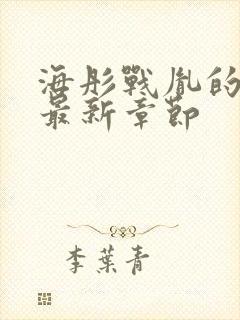 海彤戰胤的
最新章節
李葉青